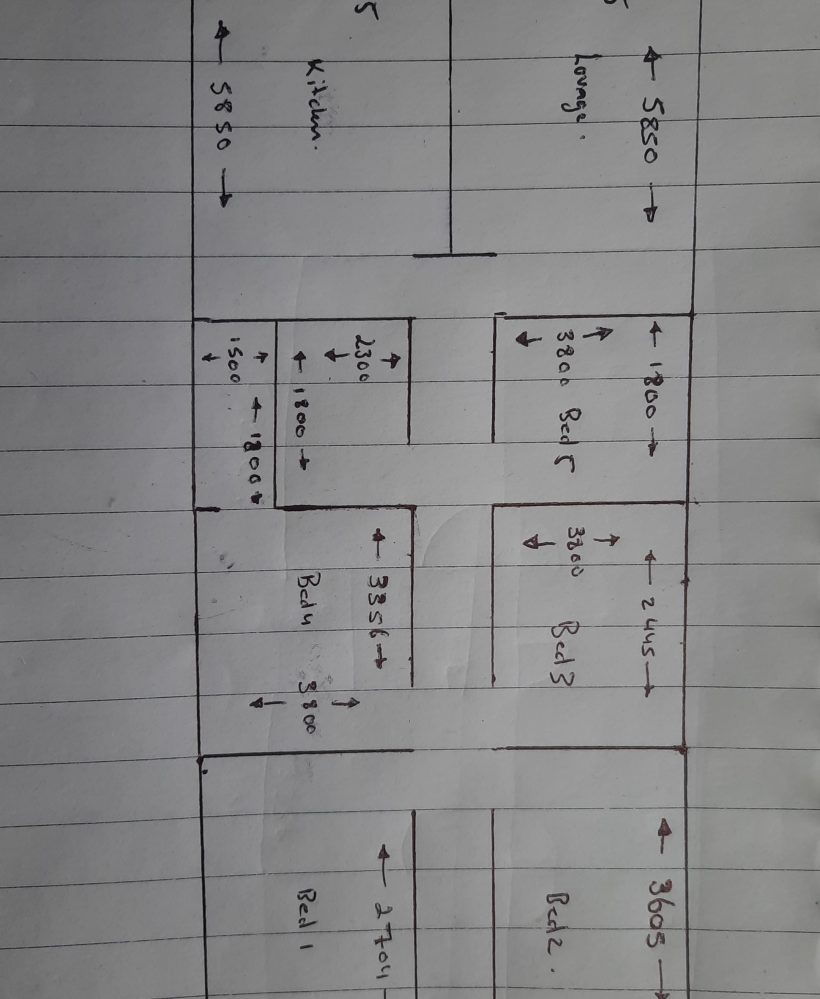 5850
Lounge.
Kitchen.
5850
1800
3800 Bed 5
2300
1800
1500
1800
2445
3800 Bed 3
3356
Bed 4
3800
3605
Bed 2.
2704
Bed 1
5